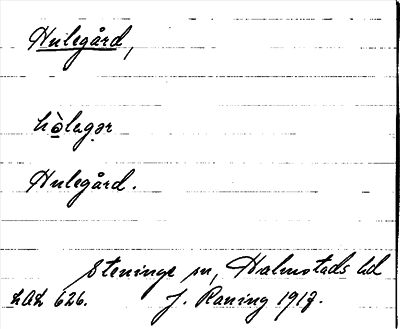 Hulegård,
hò̲lagə̣r
Hulegård.
Steninge sn, Halmstads hd
LAL 626. J. Raning 1917.